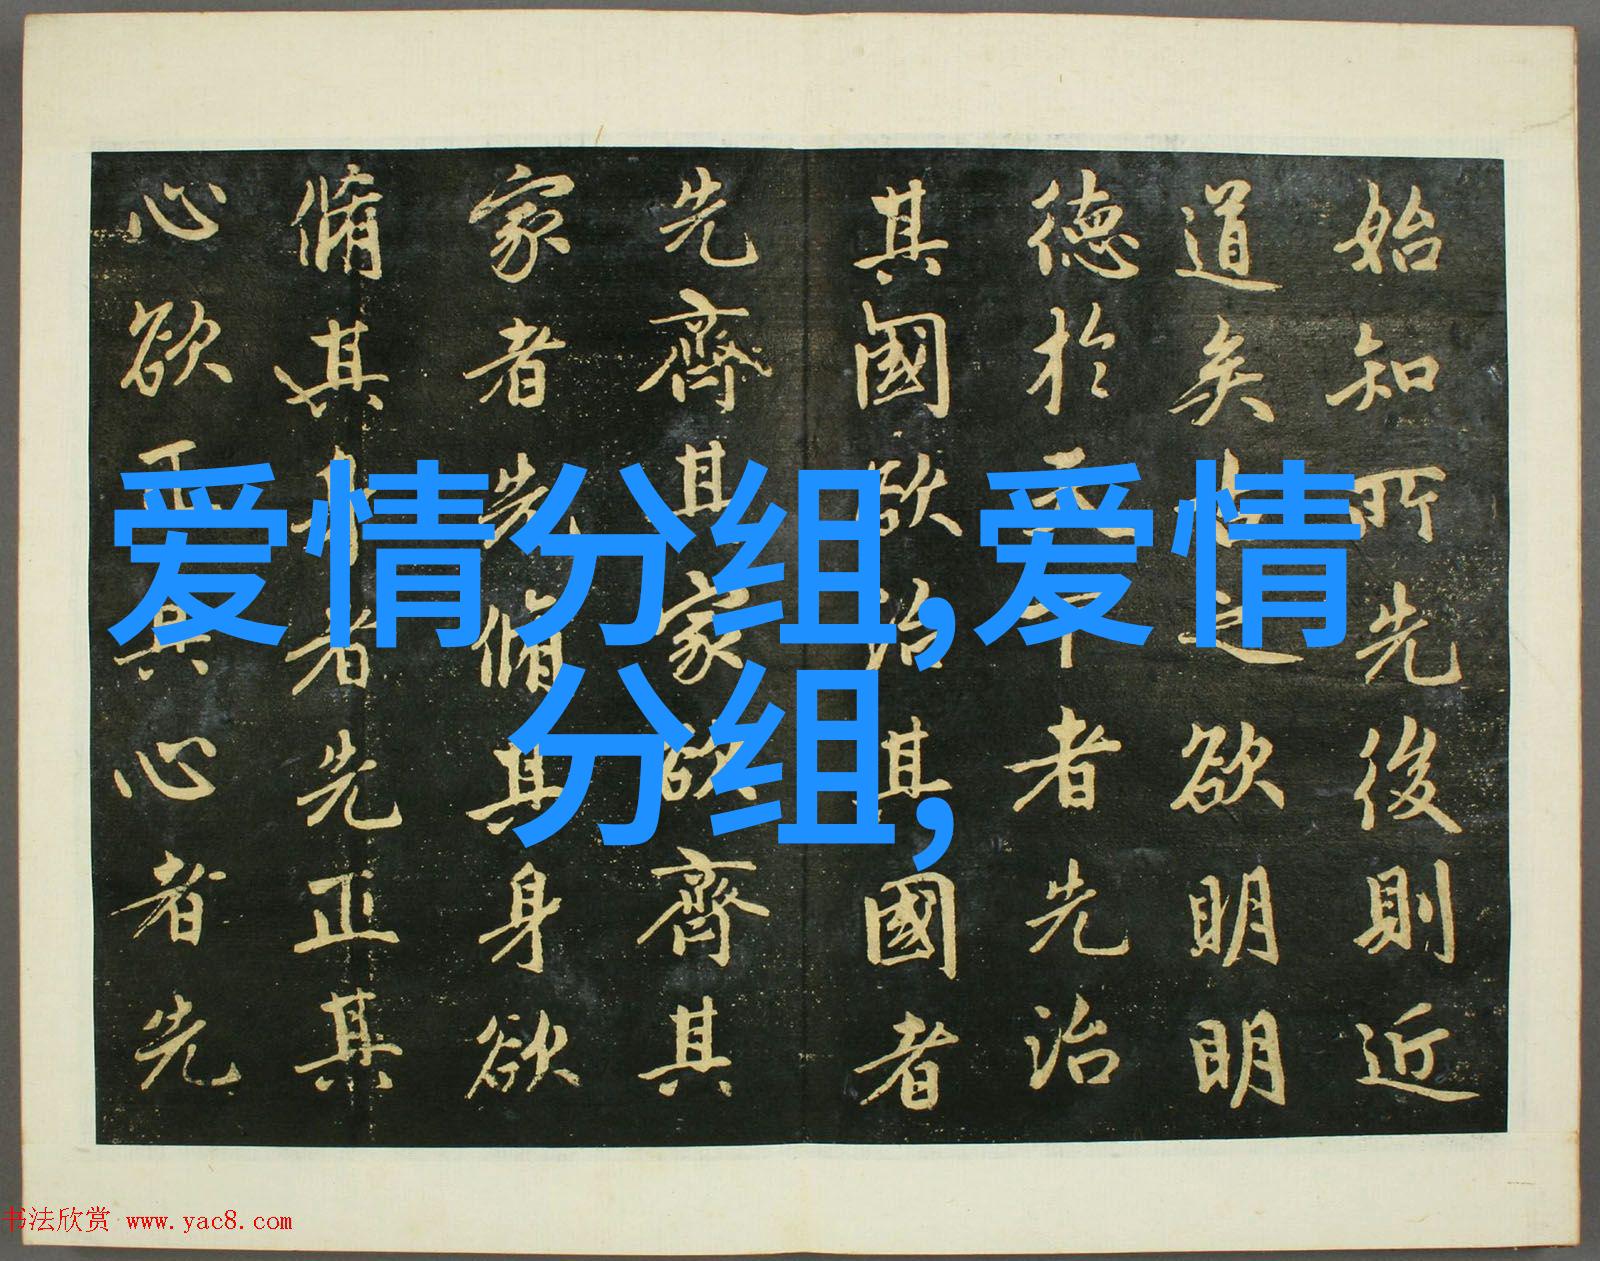 始知所先後則近
道矣古之欲明明
德於天下者先治
其國欲治其國者
先齊其家欲齊其
家者先脩其身欲
脩其身者先正其
心欲正其心者先
爱情分组,爱情
分组,
书法欣赏 www.yac8.com